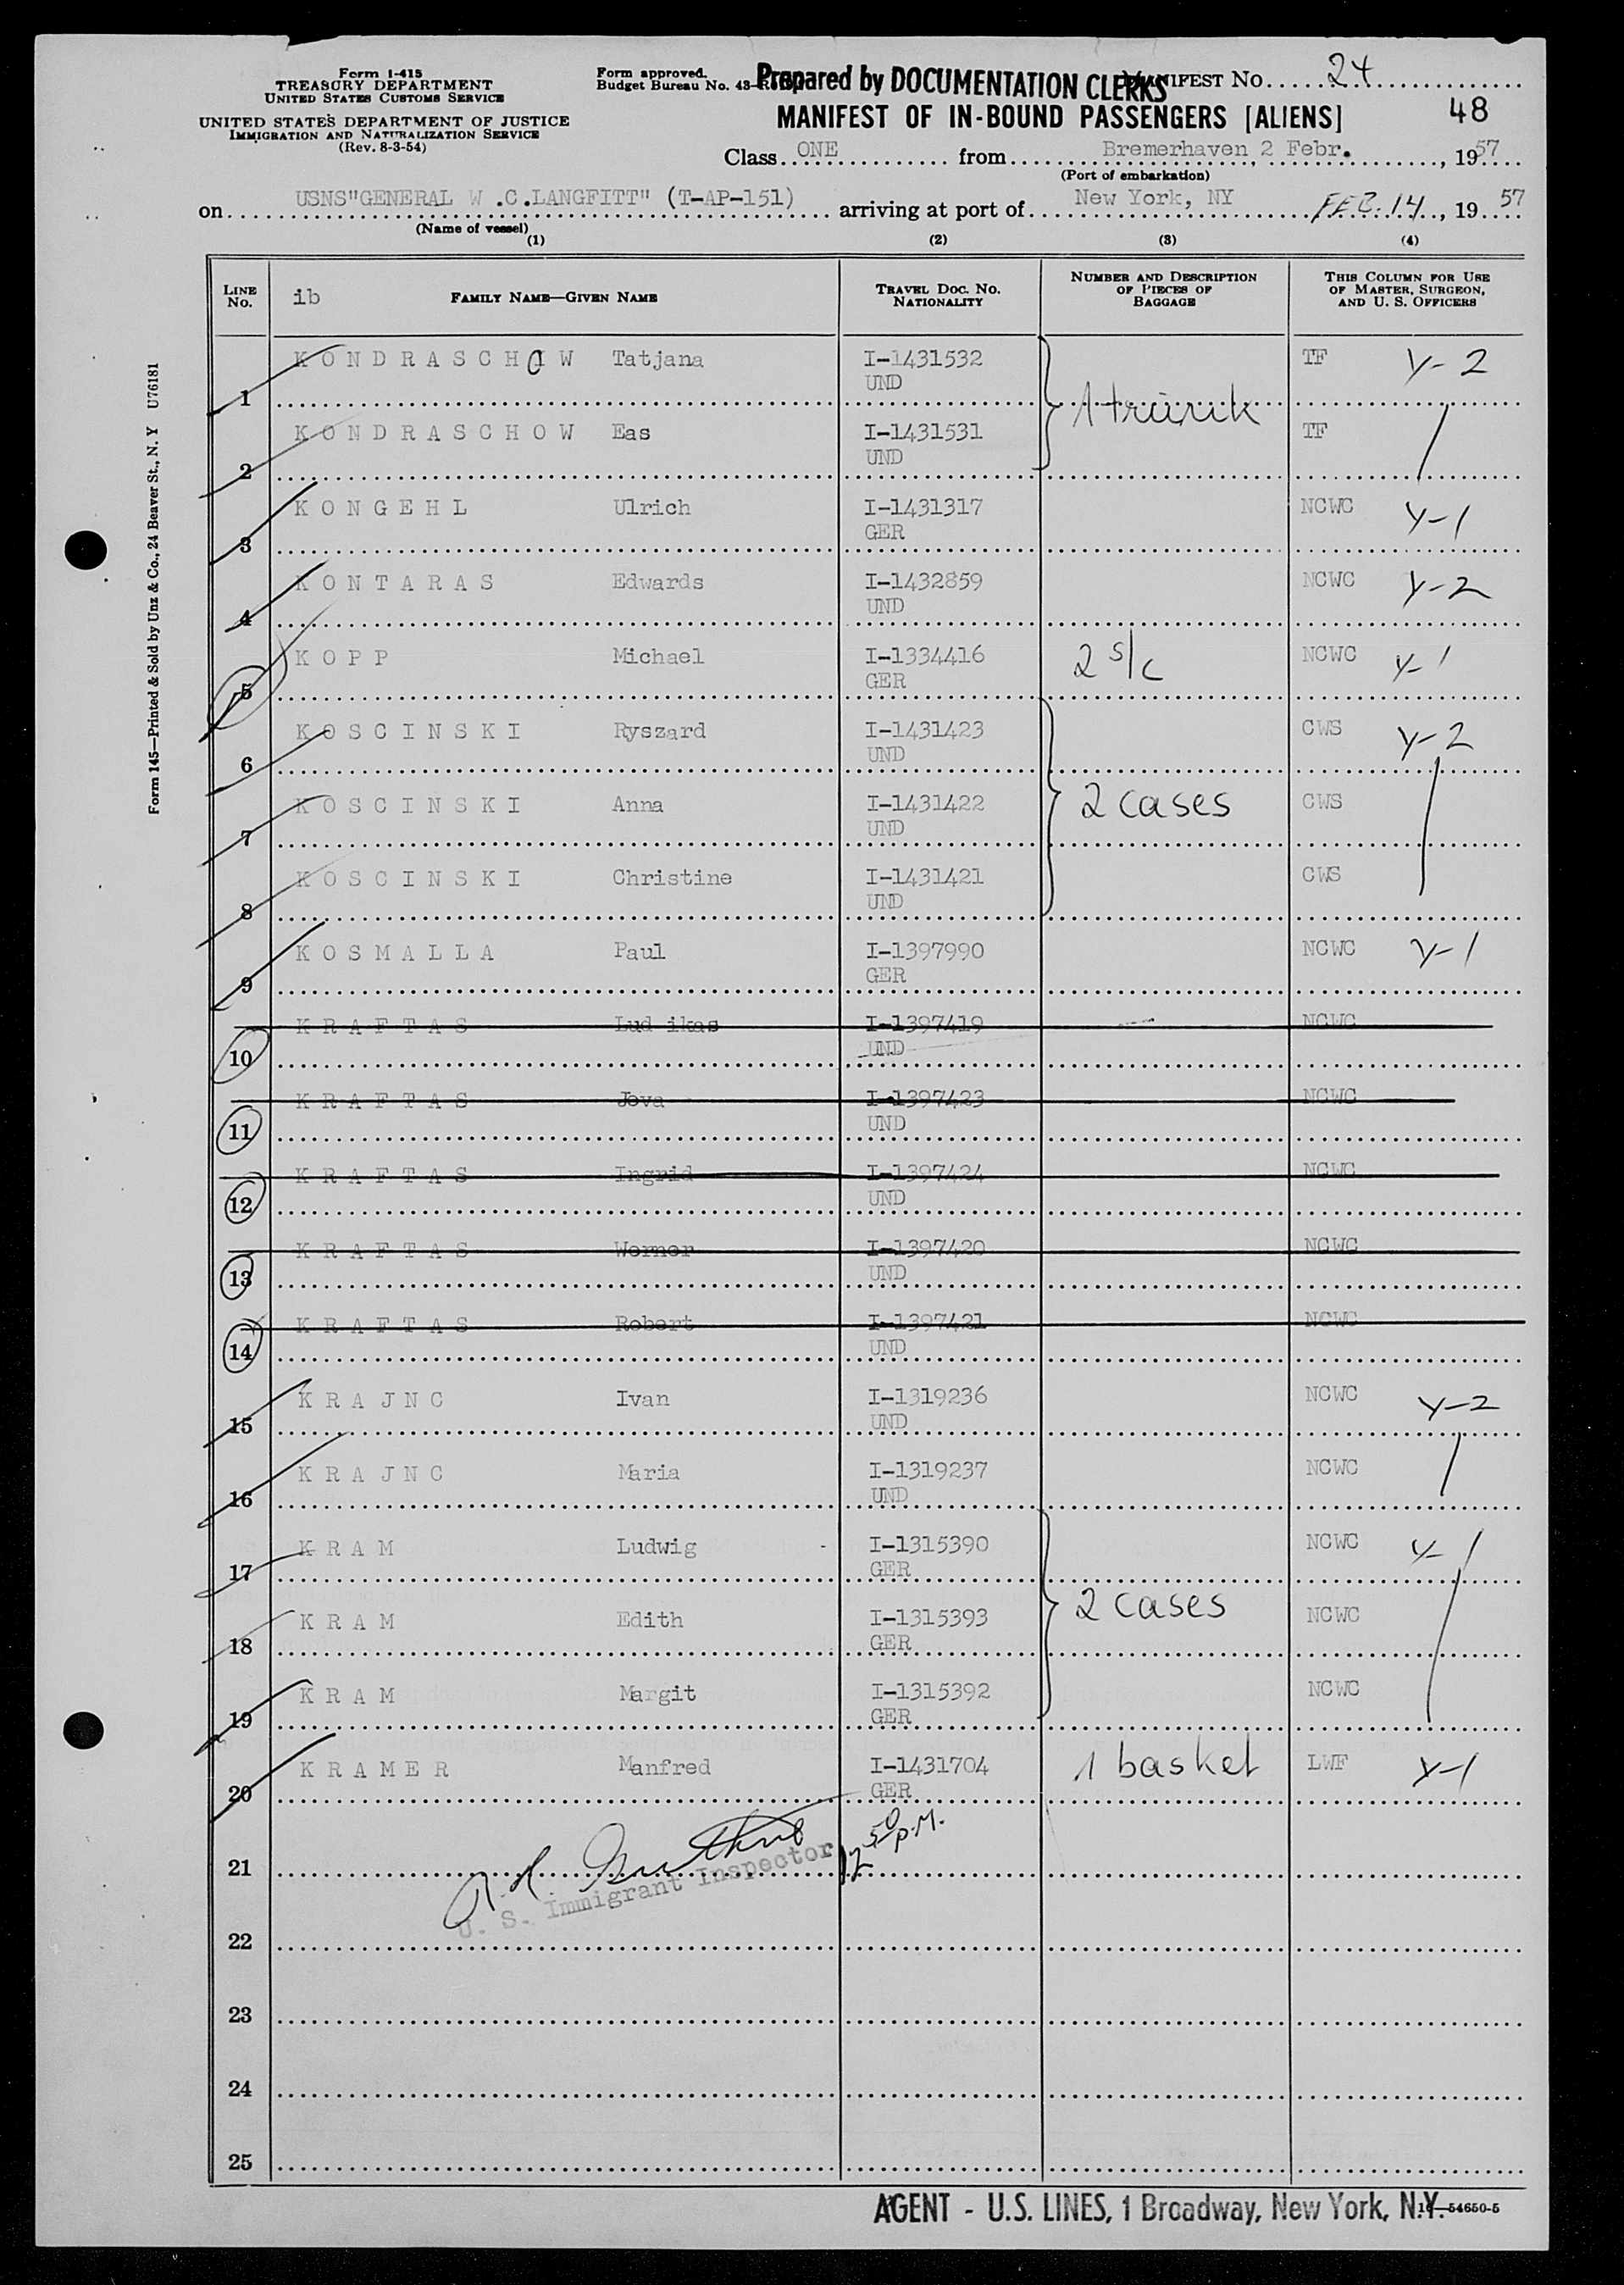 Form I-415
TREASURY DEPARTMENT
UNITED STATES CUSTOMS SERVICE
UNITED STATES DEPARTMENT OF JUSTICE
IMMIGRATION AND NATURALIZATION SERVICE
(Rev. 8-3-54)
Form approved.
Budget Bureau No. 43-
Prepared by DOCUMENTATION CLERKS
MANIFEST NO. 24
MANIFEST OF IN-BOUND PASSENGERS [ALIENS] 48
Class ONE from Bremerhaven, 2 Febr., 1957
(Port of embarkation)
on USNS"GENERAL W .C.LANGFITT" (T-AP-151) arriving at port of New York, NY FEB. 14, 1957
(Name of vessel)
(1) (2) (3) (4)
LINE NO. ib FAMILY NAME—GIVEN NAME TRAVEL DOC. NO. NATIONALITY NUMBER AND DESCRIPTION OF PIECES OF BAGGAGE THIS COLUMN FOR USE OF MASTER, SURGEON, AND U. S. OFFICERS
1 KONDRASCHOW Tatjana I-1431532 UND 1 trunk TF Y-2
2 KONDRASCHOW Eas I-1431531 UND TF
3 KONGEHL Ulrich I-1431317 GER NCWC Y-1
4 KONTARAS Edwards I-1432859 UND NCWC Y-2
5 KOPP Michael I-1334416 GER 2 s/c NCWC Y-1
6 KOSCINSKI Ryszard I-1431423 UND CWS Y-2
7 KOSCINSKI Anna I-1431422 UND 2 cases CWS
8 KOSCINSKI Christine I-1431421 UND CWS
9 KOSMALLA Paul I-1397990 GER NCWC Y-1
10 KRAFTAS Lud ikas I-1397419 UND NCWC
11 KRAFTAS Jeva I-1397423 UND NCWC
12 KRAFTAS Ingrid I-1397424 UND NCWC
13 KRAFTAS Werner I-1397420 UND NCWC
14 KRAFTAS Robert I-1397421 UND NCWC
15 KRAJNC Ivan I-1319236 UND NCWC Y-2
16 KRAJNC Maria I-1319237 UND NCWC
17 KRAM Ludwig I-1315390 GER NCWC Y-1
18 KRAM Edith I-1315393 GER 2 cases NCWC
19 KRAM Margit I-1315392 GER NCWC
20 KRAMER Manfred I-1431704 GER 1 basket LWF Y-1
12 50 P.M.
21
U. S. Immigrant Inspector
22
23
24
25
AGENT - U.S. LINES, 1 Broadway, New York, N.Y.
16—54650-5
Form 145—Printed & Sold by Unz & Co., 24 Beaver St., N. Y U76181